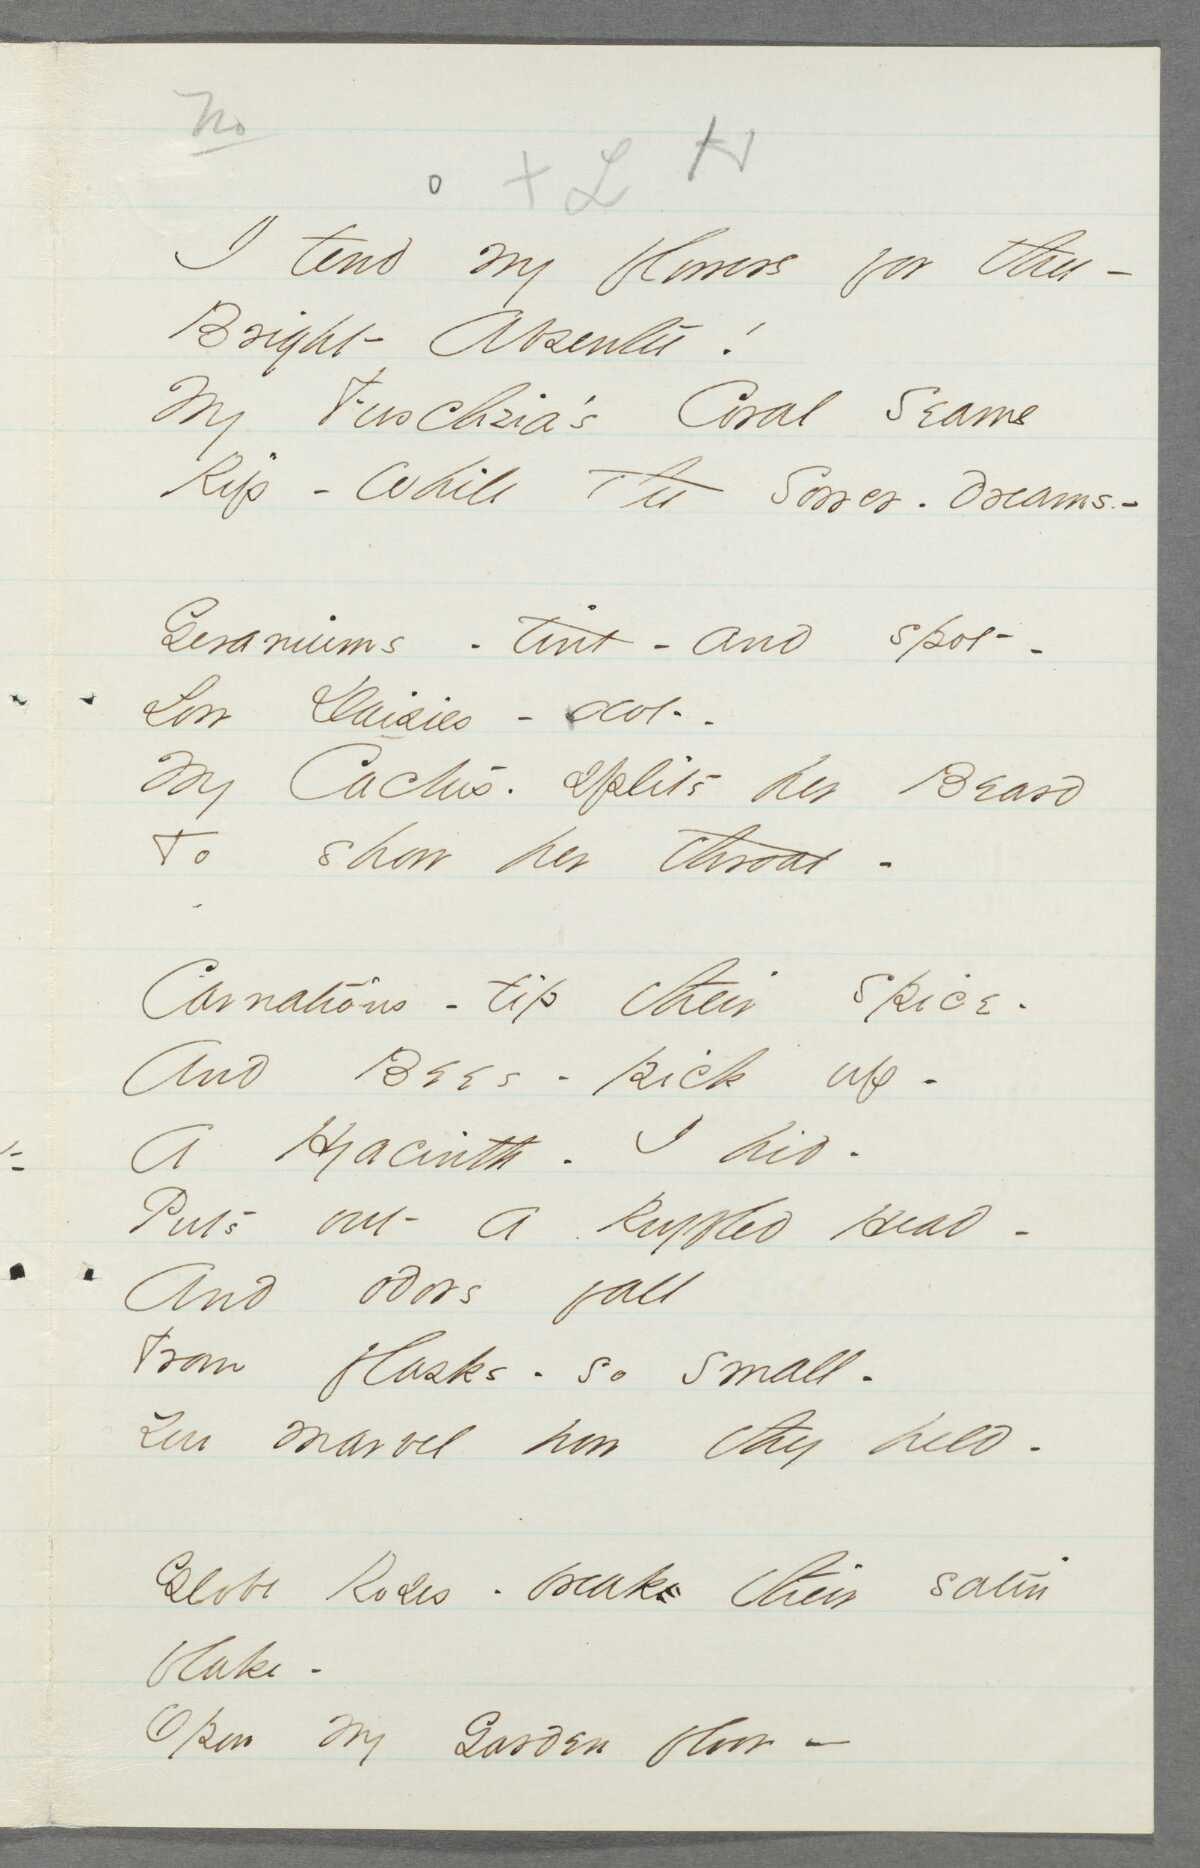 No
o + L H
I tend my flowers for thee -
Bright Absentee !
My Fuschzia's Coral Seams
Rip - while the Sower - dreams -
Geraniums - tint - and spot -
Low Daisies - dot -
My Cactus - splits her Beard
To show her throat -
Carnations - tip their spice -
And Bees - pick up -
A Hyacinth - I hid -
Puts out a Ruffled Head -
And odors fall
From flasks - so small -
You marvel how they held -
Globe Roses - break their satin
flake -
Opon my Garden floor -